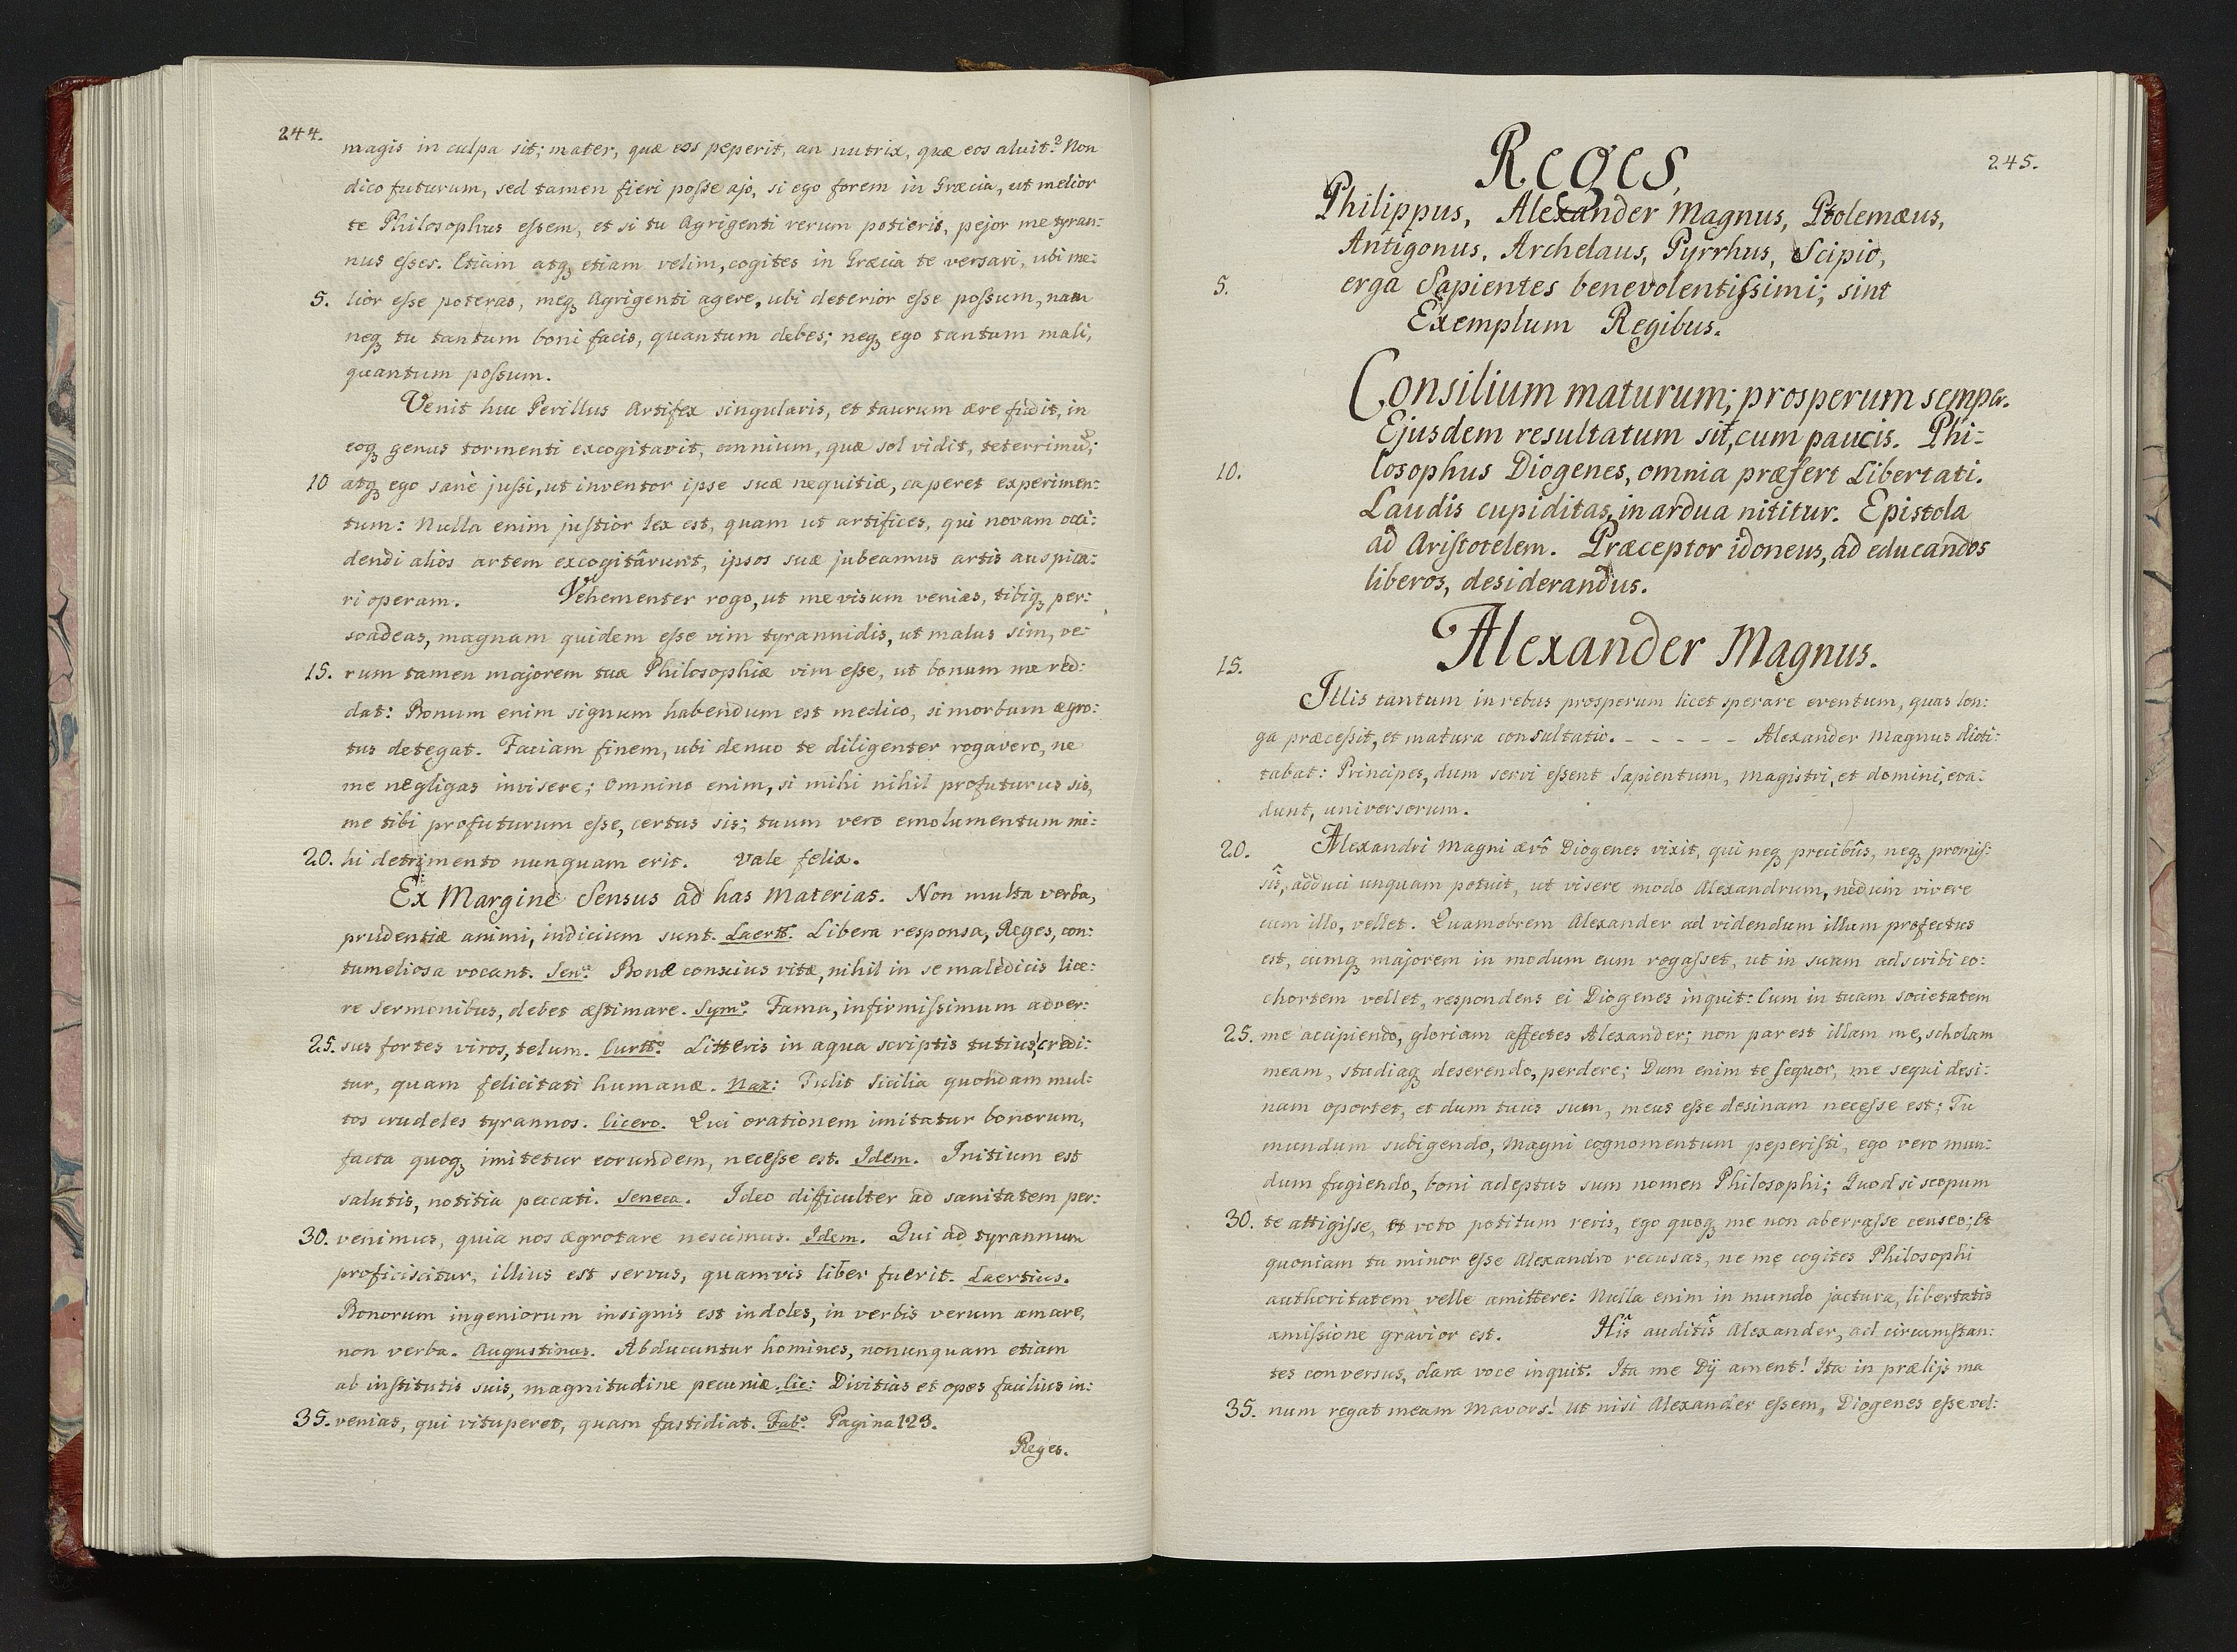 244.
magis in culpa sit; mater, quæ eos peperit, an nutrix, quæ eos aluit? Non
dico futurum, sed tamen fieri posse ajo, si ego forem in Græcia, ut melior
te Philosophus essem, et si tu Agrigenti rerum potieris, pejor me tyran:
nus esses. Etiam atq etiam velim, cogites in Græcia te versari, ubi me:
5. lior esse poteras, meq Agrigenti agere, ubi deterior esse possum, nam
neq tu tantum boni facis, quantum debes; neq ego tantum mali,
quantum possum.
Venit huc Perillus Artifex singularis, et taurum ære fudit, in
eoq genus tormenti excogitavit, omnium, quæ sol vidit, teterrimū;
10 atq ego sanè jussi, ut inventor ipse suæ nequitiæ, caperet experimen:
tum: Nulla enim justior lex est, quam ut artifices, qui novam occi:
dendi alios artem excogitârunt, ipsos suæ jubeamus artis auspica:
ri operam. Vehementer rogo, ut me visum venias, tibiq per:
soadeas, magnam quidem esse vim tyrannidis, ut malus sim, ve:
15. rum tamen majorem tuæ Philosophiæ vim esse, ut bonum me red:
dat: Bonum enim signum habendum est medico, si morbum ægro:
tus detegat. Faciam finem, ubi denuo te diligenter rogavero, ne
me negligas invisere; Omnino enim, si mihi nihil profuturus sis,
me tibi profuturum esse, certus sis; tuum vero emolumentum mi:
20. hi detrimento nunquam erit. Vale felix.
Ex Margine Sensus ad has Materias. Non multa verba,
prudentiæ animi, indicium sunt. Laertt. Libera responsa, Reges, con:
tumeliosa vocant. Senª. Bonæ conscius vitæ, nihil in se maledicis lice:
re sermonibus, debet æstimare. Symº. Fama, infirmissimum adver:
25. sus fortes viros, telum. Curttº. Litteris in aqua scriptis tutius credi:
tur, quam felicitati humanæ. Naz: Tulit Sicilia quondam mul:
tos crudeles tyrannos. Cicero. Qui orationem imitatur bonorum,
facta quoq imitetur eorundem, necesse est. Idem. Initium est
salutis, notitia peccati. Seneca. Ideo difficulter ad sanitatem per:
30. venimus, quia nos ægrotare nescimus. Idem. Qui ad tyrannum
proficiscitur, illius est servus, quamvis liber fuerit. Laertius.
Bonorum ingeniorum insignis est indoles, in verbis verum amare,
non verba. Augustinus. Abducuntur homines, nonunquam etiam
ab institutis suis, magnitudine pecuniæ. Cic: Divitias et opes facilius in:
35. venias, qui vituperet, quam fastidiat. Fabº. Pagina 123.
Reges.
245.
Reges,
Philippus, Alexander Magnus, Ptolemæus,
Antigonus, Archelaus, Pyrrhus, Scipio,
5. erga Sapientes benevolentissimi; sint
Exemplum Regibus.
Consilium maturum; prosperum semper.
Ejusdem resultatum sit, cum paucis. Phi:
10. losophus Diogenes, omnia præfert Libertati.
Laudis cupiditas, in ardua nititur. Epistola
ad Aristotelem. Præceptor idoneus, ad educandos
liberos, desiderandus.
Alexander Magnus.
15.
Illis tantum in rebus prosperum licet sperare eventum, quas lon:
ga præcessit, et matura consultatio. - - - - - Alexander Magnus dicti:
tabat: Principes, dum servi essent Sapientum, Magistri, et domini, eva:
dunt, universorum.
20. Alexandri Magni ævô Diogenes vixit, qui neq precibûs, neq promis:
sîs, adduci unquam potuit, ut visere modo Alexandrum, nedum vivere
cum illo, vellet. Quamobrem Alexander ad videndum illum profectus
est, cumq majorem in modum eum rogasset, ut in suam adscribi co:
chortem vellet, respondens ei Diogenes inquit: Cum in tuam societatem
25. me accipiendo, gloriam affectes Alexander; non par est illam me, scholam
meam, studiaq deserendo, perdere; Dum enim te sequor, me sequi desi:
nam oportet, et dum tuus sum, meus esse desinam necesse est; Tu
mundum subigendo, Magni cognomentum peperisti, ego vero mun:
dum fugiendo, boni adeptus sum nomen Philosophi; Quod si scopum
30. te attigisse, et voto potitum reris, ego quoq me non aberrasse censeo; Et
quoniam tu minor esse Alexandro recusas, ne me cogites Philosophi
authoritatem velle amittere: Nulla enim in mundo jactura, libertatis
amissione gravior est. Hîs auditîs Alexander, ad circumstan:
tes conversus, clara voce inquit. Ita me Dij ament! Ita in prælijs ma
35. num regat meam Mavors! Ut nisi Alexander essem, Diogenes esse vel: